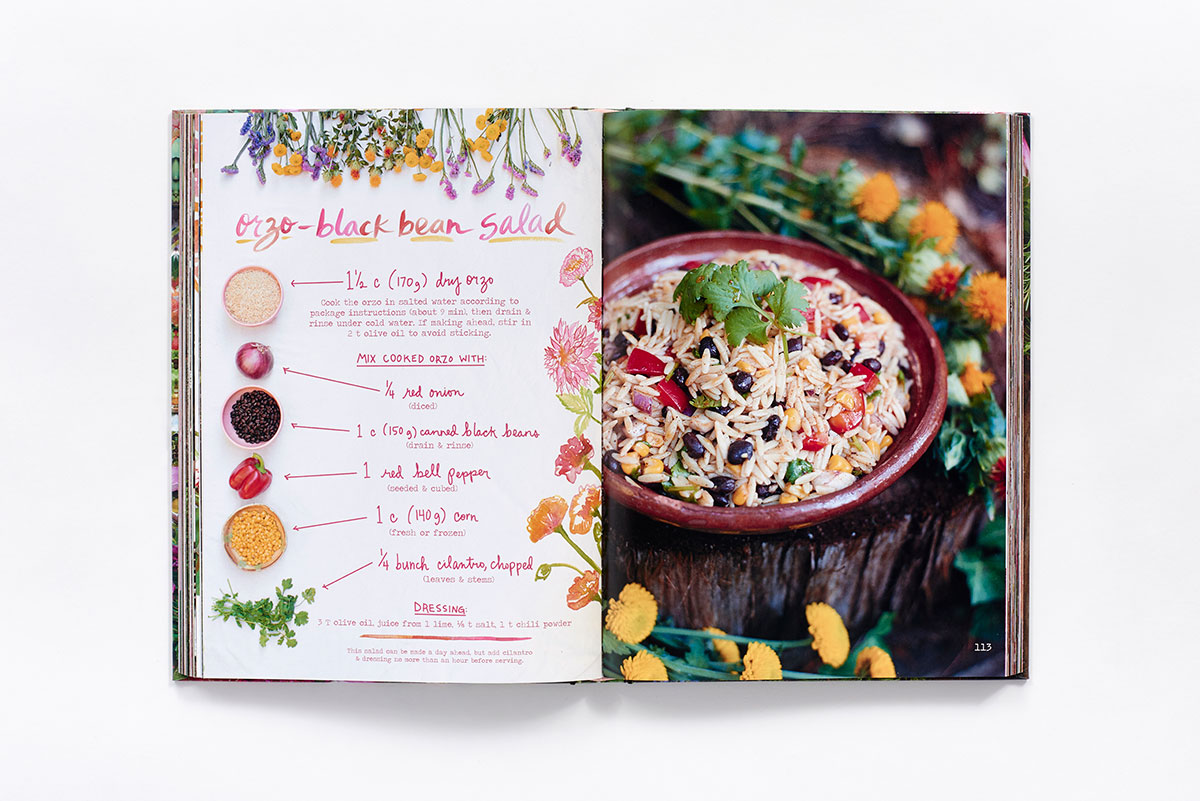 orzo-black bean salad
1½ c (170g) dry orzo
Cook the orzo in salted water according to
package instructions (about 9 min), then drain &
rinse under cold water. If making ahead, stir in
2 t olive oil to avoid sticking.
MIX COOKED ORZO WITH:
¼ red onion
(diced)
1 c (150g) canned black beans
(drain & rinse)
1 red bell pepper
(seeded & cubed)
1 c (140g) corn
(fresh or frozen)
¼ bunch cilantro, chopped
(leaves & stems)
DRESSING:
3 T olive oil, juice from 1 lime, t salt, 1 t chili powder
This salad can be made a day ahead, but add cilantro
& dressing no more than an hour before serving.
113